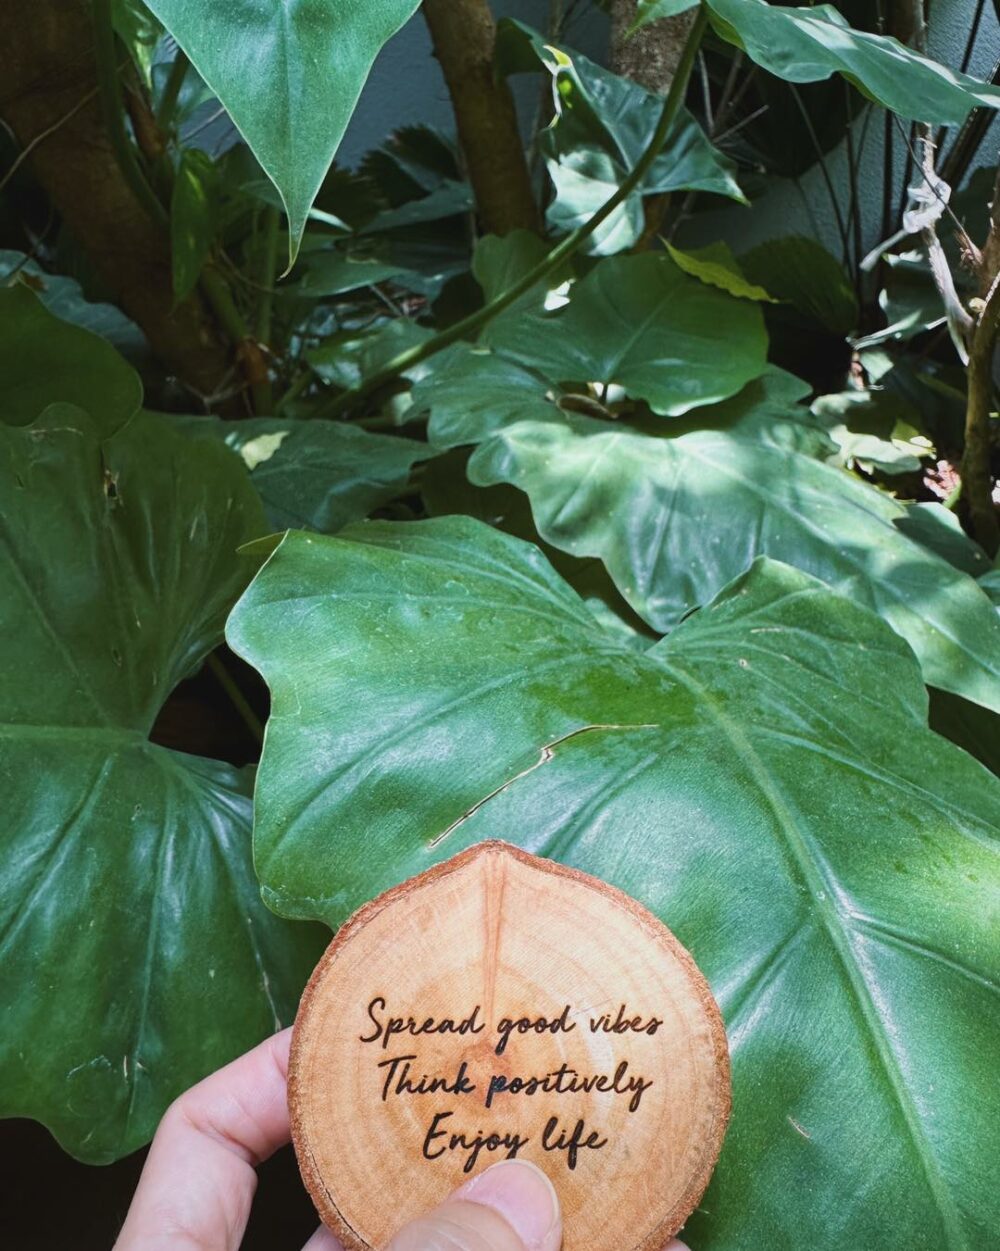 Spread good vibes
Think positively
Enjoy life